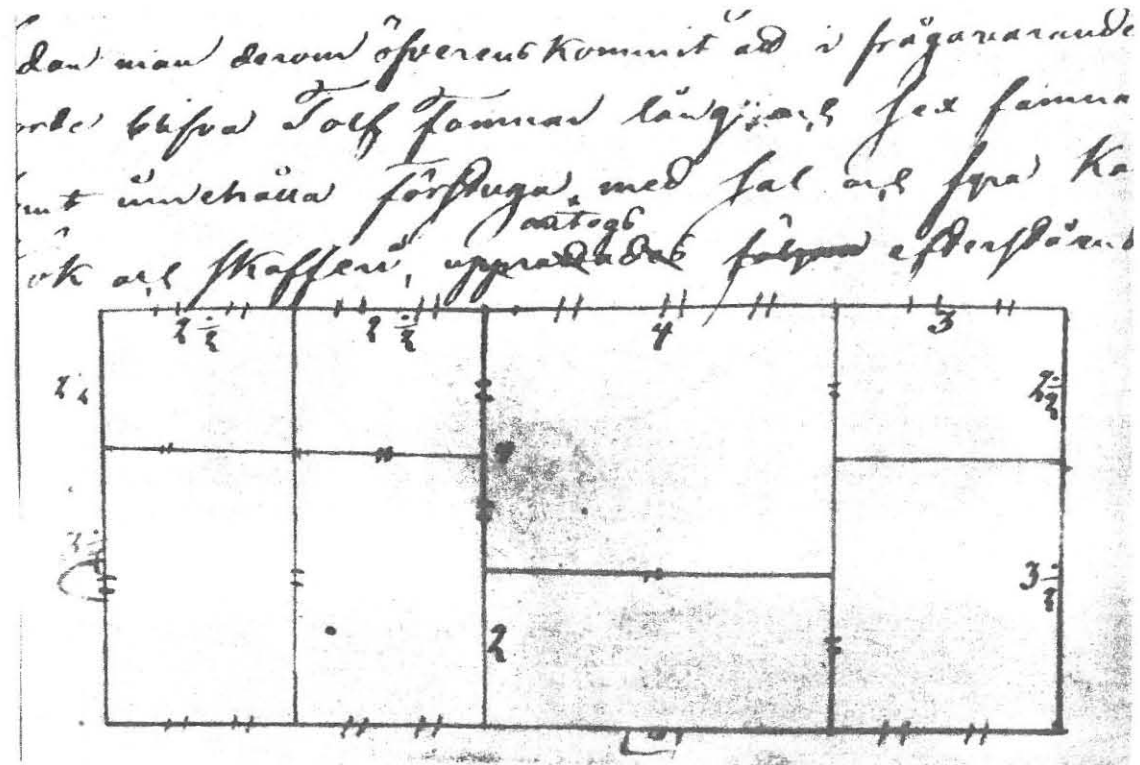 dan man derom öfverenskommit att i frågavarande
borde blifva Tolf famnar lång och sex famna
samt innehålla förstuga med sal och fyra Ka
kök och skafferi, antogs efterstående
2 1/2 2 1/2 4 3
2 1/2
4
3 1/2
2
3 1/2